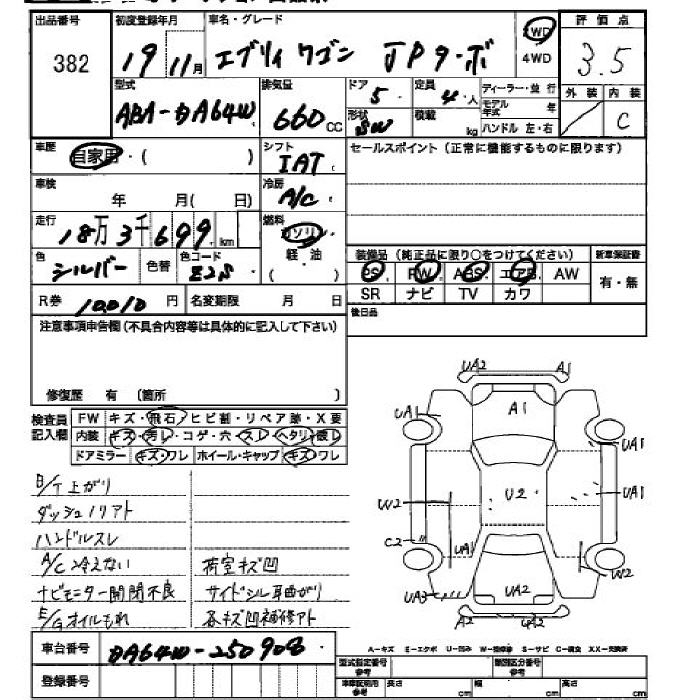 出品番号 初度登録年月 車名・グレード 評価点
382 19 11月 エブリィ ワゴン JPターボ 2WD 4WD 3.5
型式 排気量 ドア 定員 ディーラー・並行 外装 内装
ABA-DA64W 660cc 5 4人 モデル年式 年 C
形状 SW 積載 kg ハンドル 左・右
車歴 自家用・( ) シフト IAT セールスポイント(正常に機能するものに限ります)
車検 年 月( 日) 冷房 A/C
走行 18万3千699km 燃料 ガソリン
軽・油
( )
色 シルバー 色替 色コード Z2S 装備品(純正品に限り○をつけてください) 新車保証書
PS PW ABS エアB AW 有・無
R券 10,010円 名変期限 月 日 SR ナビ TV カワ
注意事項申告欄(不具合内容等は具体的に記入して下さい) 後日品
修復歴 有 (箇所 )
検査員記入欄 FW キズ・飛石・ヒビ割・リペア跡・X要
内装 キズ・汚レ・コゲ・穴・スレ・ヘタリ・破レ
ドアミラー キズ・ワレ ホイール・キャップ キズ・ワレ
B/T上がり
ダッシュノリアト
ハンドルスレ
A/C冷えない 荷室キズ凹
ナビモニター開閉不良 サイドシル耳曲がり
E/Gオイルもれ 各キズ凹補修アト
UA2 A1
A1
UA1 UA1
W2 U2 UA1
C2 UA1 W2
UA3 UA2
A2 UA2
車台番号 DA64W-250908
A-キズ E-エクボ U-凹み W-補修跡 S-サビ C-腐食 XX-交換済
登録番号 型式指定番号 参考 類別区分番号 参考
車庫証明用 参考 長さ cm 幅 cm 高さ cm